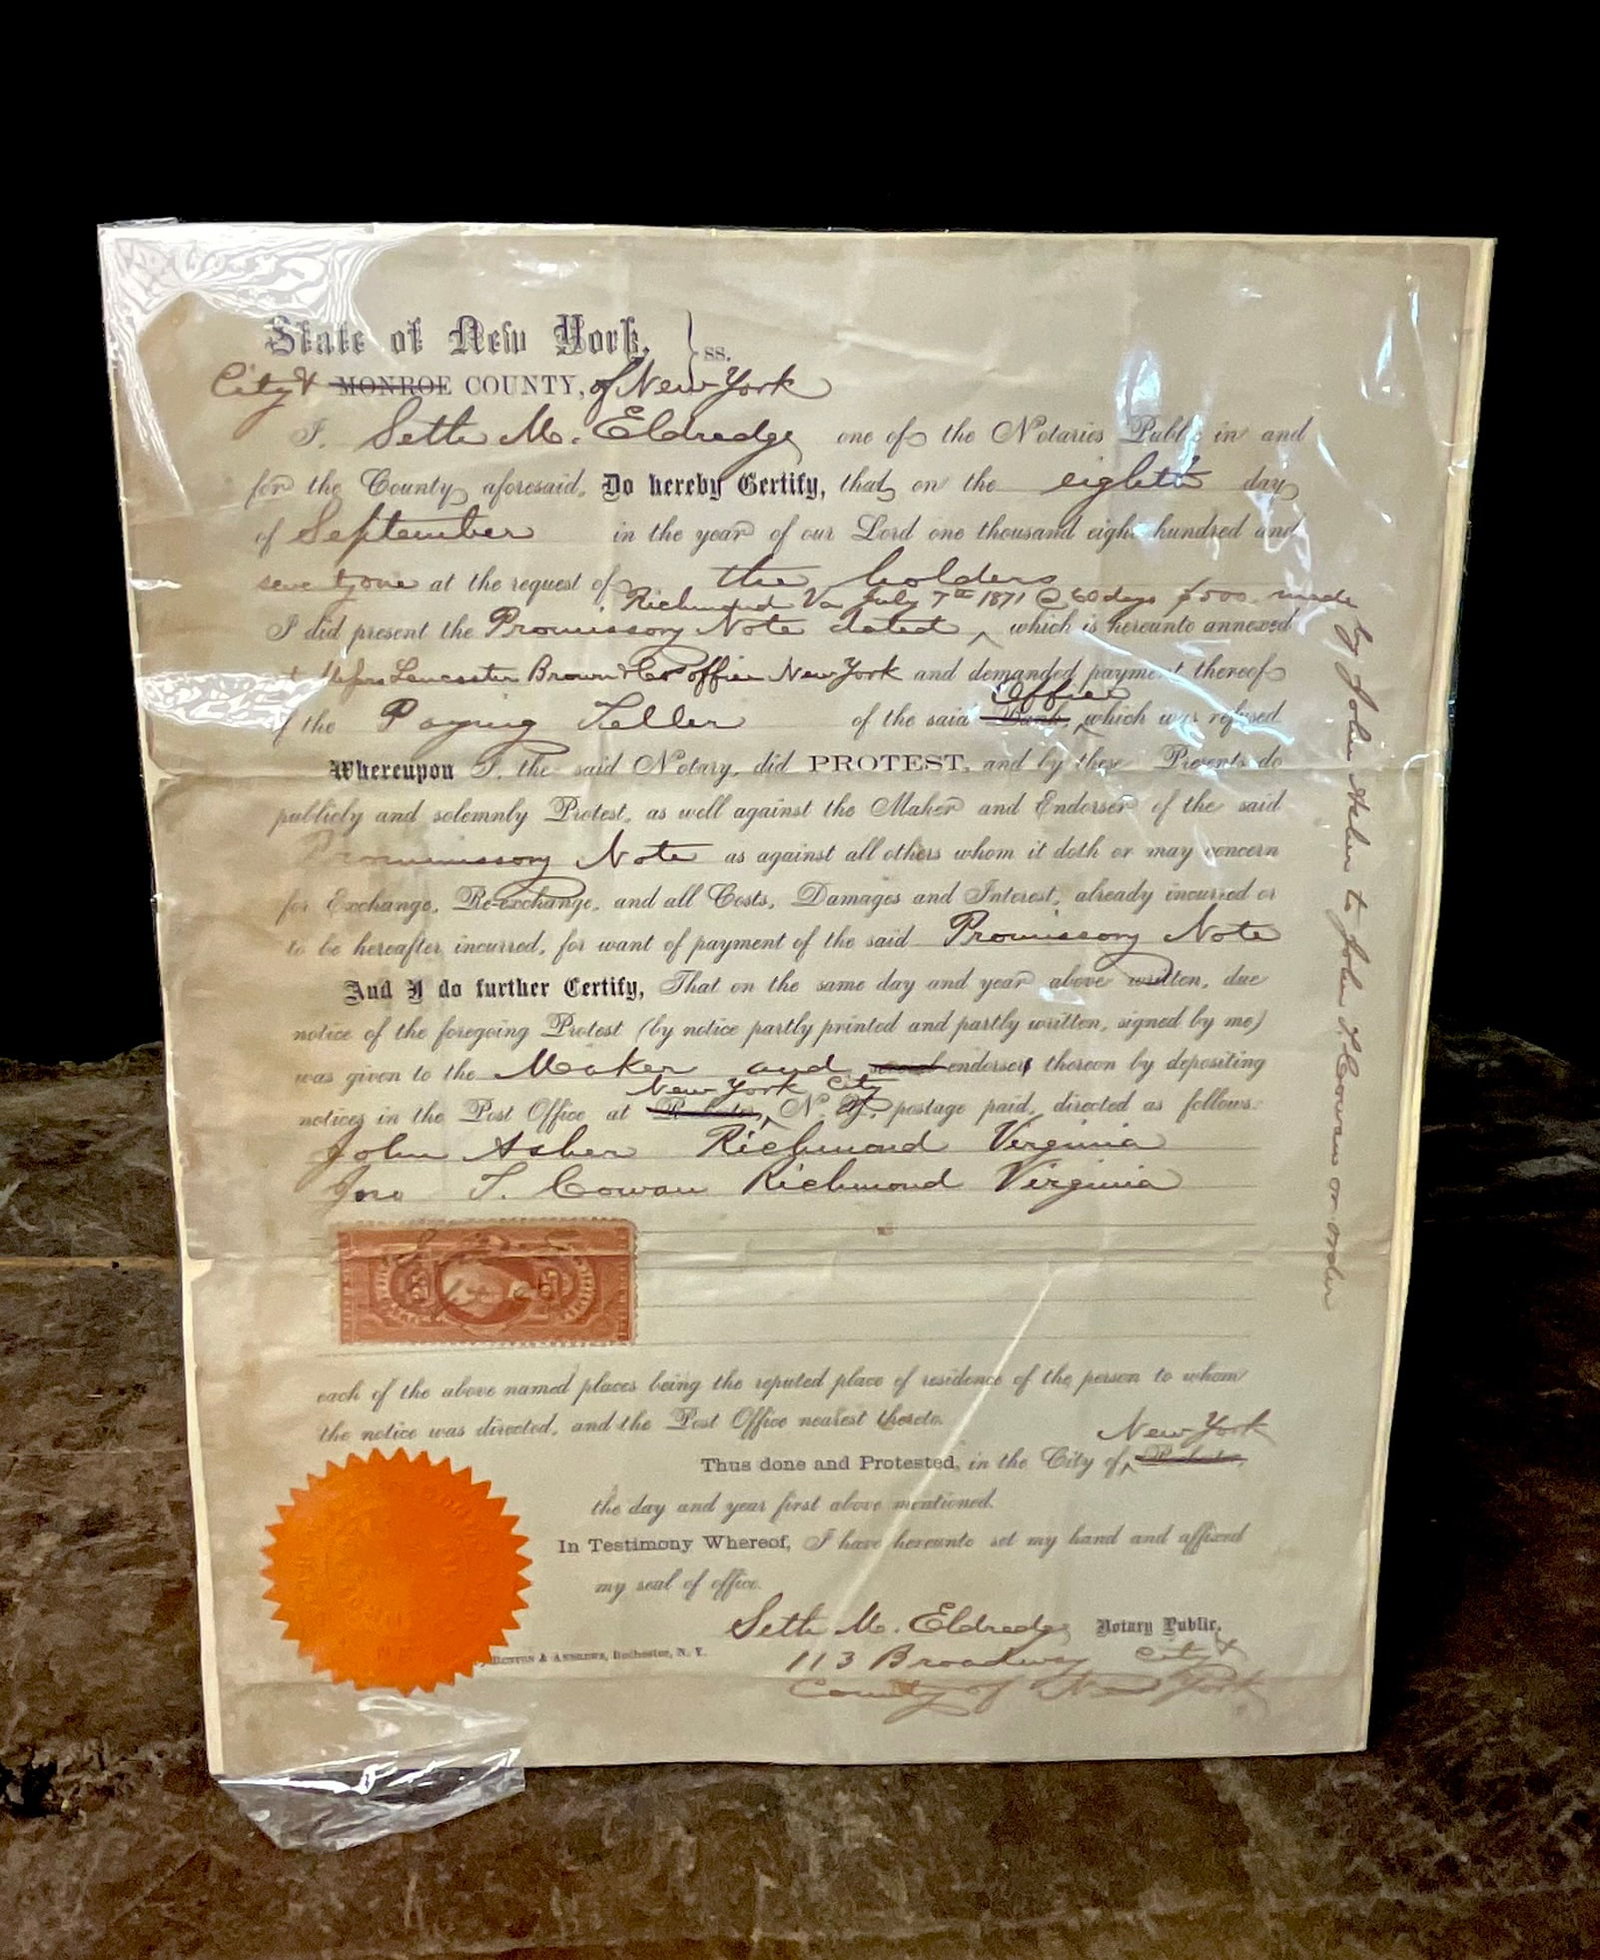 State of New York, } ss.
City & MONROE COUNTY, of New York
I, Seth M. Eldredge one of the Notaries Public in and
for the County aforesaid, Do hereby Certify, that on the eighth day
of September in the year of our Lord one thousand eight hundred and
seventy one at the request of the holders
Richmond Va July 7th 1871 @ 60 days $500 made
I did present the Promissory Note dated ^ which is hereunto annexed
Lancaster Brown & Co office New York and demanded payment thereof
Office
of the Paying Teller of the said Bank, ^ which was refused
Whereupon I, the said Notary, did PROTEST, and by these Presents do
publicly and solemnly Protest, as well against the Maker and Endorser of the said
Promissory Note as against all others whom it doth or may concern
for Exchange, Re-exchange, and all Costs, Damages and Interest, already incurred or
to be hereafter incurred, for want of payment of the said Promissory Note
And I do further Certify, That on the same day and year above written, due
notice of the foregoing Protest (by notice partly printed and partly written, signed by me)
was given to the Maker and endorser thereon by depositing
New York City
notices in the Post Office at Rochester, ^ N. Y. postage paid, directed as follows:
John Asher Richmond Virginia
Jno T. Cowan Richmond Virginia
each of the above named places being the reputed place of residence of the person to whom
the notice was directed, and the Post Office nearest thereto.
New York
Thus done and Protested, in the City of ^ Rochester,
the day and year first above mentioned.
In Testimony Whereof, I have hereunto set my hand and affixed
my seal of office.
Seth M. Eldredge Notary Public,
113 Broadway City &
County of New York
& ANDREWS, Rochester, N. Y.
by John Asher to John T. Cowan or order